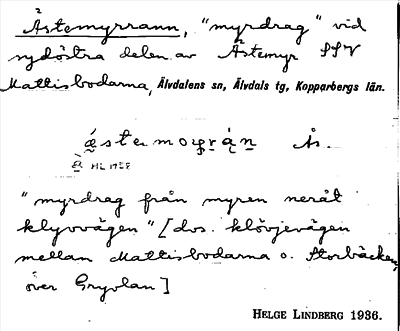 Åstemyrrann, "myrdrag" vid
sydöstra delen av Åstemyr SSV
Mattisbodarna, Älvdalens sn, Älvdals tg, Kopparbergs län.
Ås.
"myrdrag från myren neråt
klyvvägen" [dvs. klövjevägen
mellan Mattisbodarna o. Storbäcken,
över Gryvlan]
HELGE LINDBERG 1936.